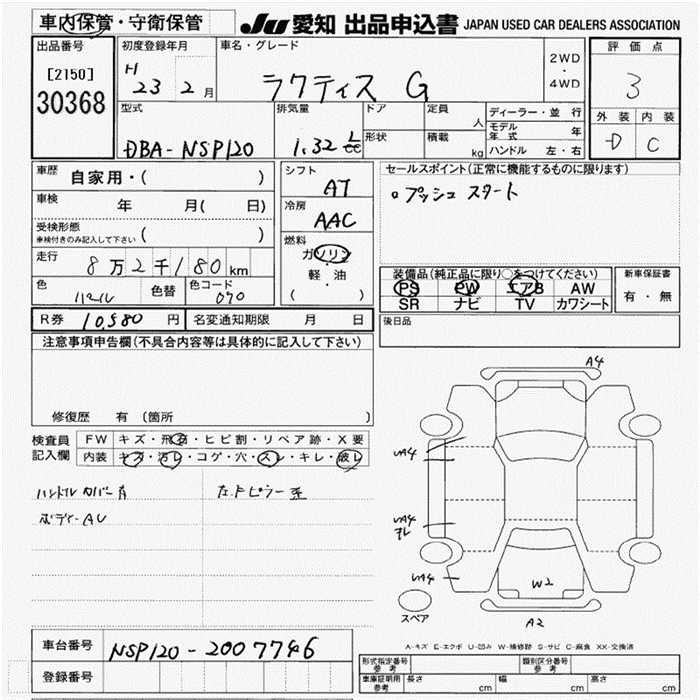 車内保管・守衛保管
JU 愛知 出品申込書 JAPAN USED CAR DEALERS ASSOCIATION
出品番号
[2150]
30368
初度登録年月
H 23 2 月
車名・グレード
ラクティス G
2WD
・
4WD
評価点
3
外装 内装
D C
型式
DBA-NSP120
排気量
1.32 ℓ cc
ドア
形状
定員 人
積載 kg
ディーラー・並 行
モデル年式 年
ハンドル 左・右
車歴 自家用・( )
車検 年 月( 日)
受検形態
※検付きのみ記入して下さい ( )
走行 8万2千180km
色 パール 色替 色コード 070
シフト
AT
冷房
AAC
燃料
ガソリン
軽・油
( )
セールスポイント(正常に機能するものに限ります)
○プッシュスタート
装備品(純正品に限り○をつけてください)
PS PW エアB AW
SR ナビ TV カワシート
新車保証書
有・無
R券 10,580 円 名変通知期限 月 日
後日品
注意事項申告欄(不具合内容等は具体的に記入して下さい)
修復歴 有 (箇所 )
検査員
記入欄
FW キズ・飛石・ヒビ割・リペア跡・X要
内装 キズ・汚レ・コゲ・穴・スレ・キレ・破レ
ハンドルカバー有
ボディーAU
左Fピラー
A4
UA4
UA4
UA4
W2
A2
スペア
A-キズ E-エクボ U-凹み W-補修跡 S-サビ C-腐食 XX-交換済
車台番号 NSP120-2007746
登録番号
形式指定番号
参考
類別区分番号
参考
車庫証明用
参考
長さ cm 幅 cm 高さ cm